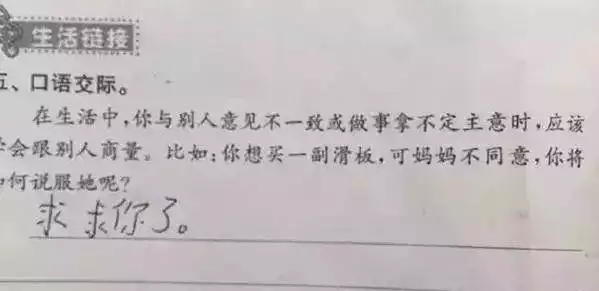 生活链接
五、口语交际。
在生活中,你与别人意见不一致或做事拿不定主意时,应该
学会跟别人商量。比如:你想买一副滑板,可妈妈不同意,你将
如何说服她呢?
求求你了。